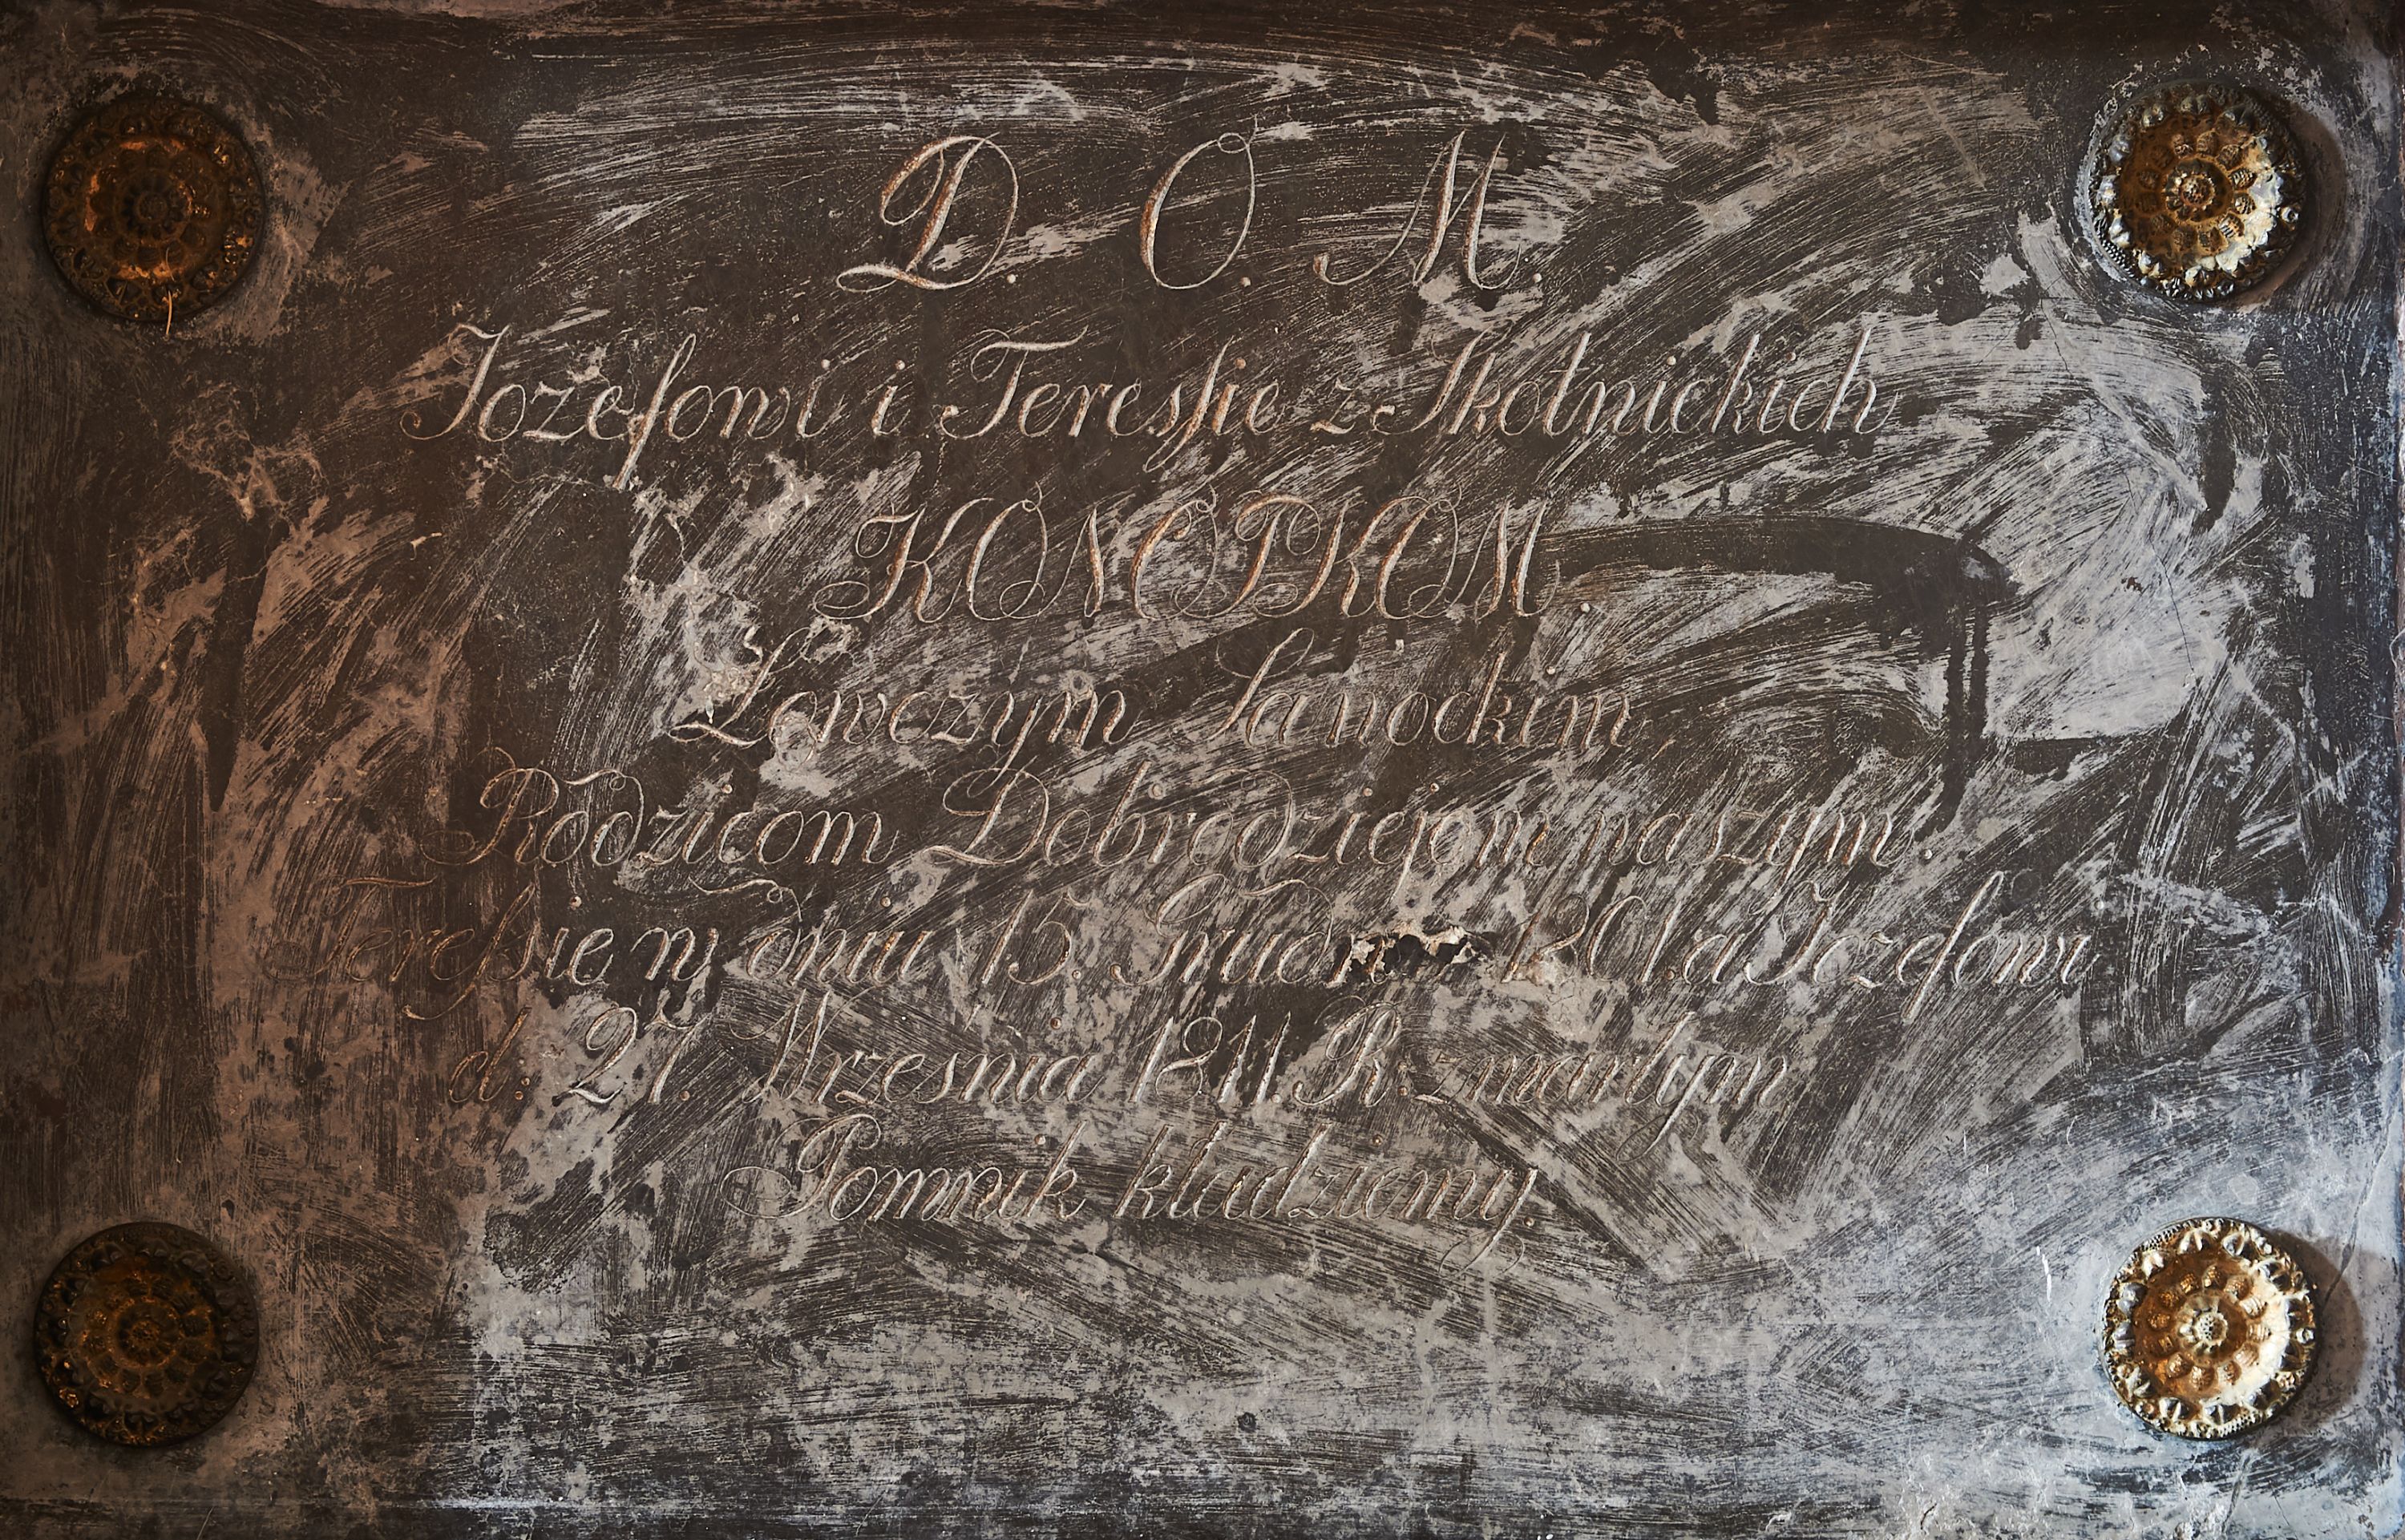 D. O. M.
Jozefowi i Teressie z Skotnickich
KONOPKOM.
Łowczym Sanockim,
Rodzicom Dobrodziejom naszym.
Teressie w dniu 15. 1801. a Jozefowi
d: 27. Wrzesnia 1811. R: zmarłym,
Pomnik kładziemy.